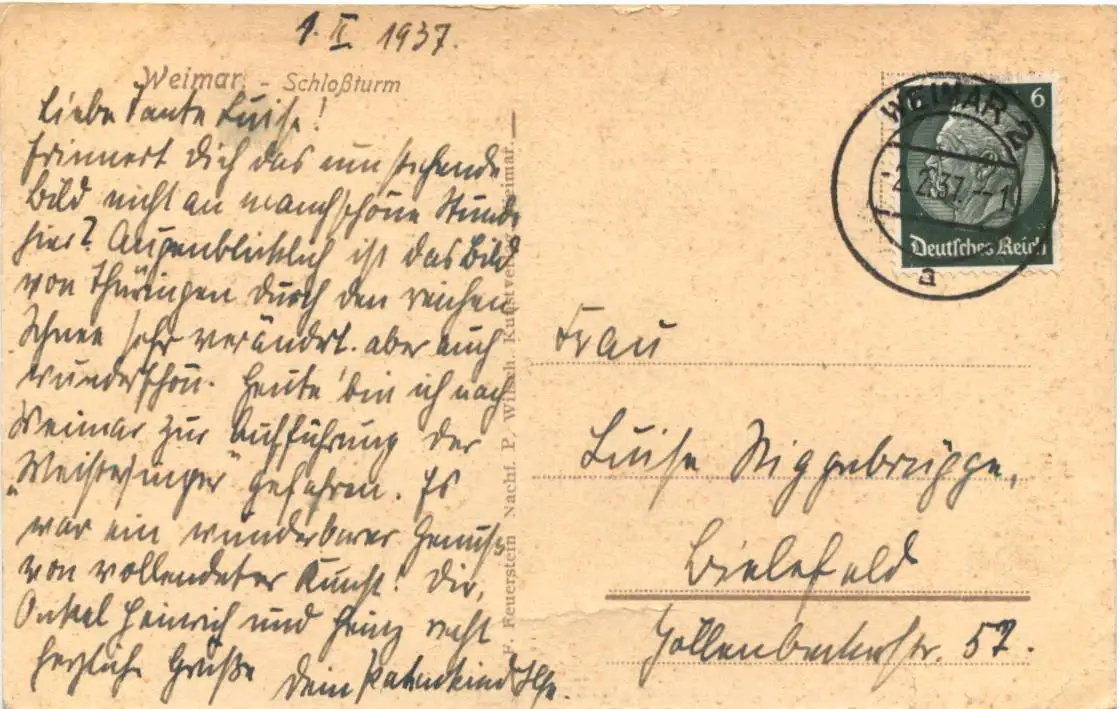 1. II 1937.
Weimar. - Schloßturm
Liebe Tante Luise!
Erinnert Dich das umstehende
Bild nicht an manch schöne Stunde
hier? Augenblicklich ist das Bild
von Thüringen durch den reichen
Schnee sehr verändert. aber auch
wunderschön. Heute bin ich nach
Weimar zur Aufführung der
„Meistersinger" gefahren. Es
war ein wunderbarer Genuss
von vollendeter Kunst! Dir,
Onkel Heinrich und Heinz recht
herzliche Grüße Dein Patenkind Ilse.
F. Feuerstein Nachf. P. Wilsch., Weimar.
WEIMAR 2
2.2.37.
a
6
Deutsches Reich
Frau
Luise Niggebrügge,
Bielefeld
Jöllenbeckerstr. 52.